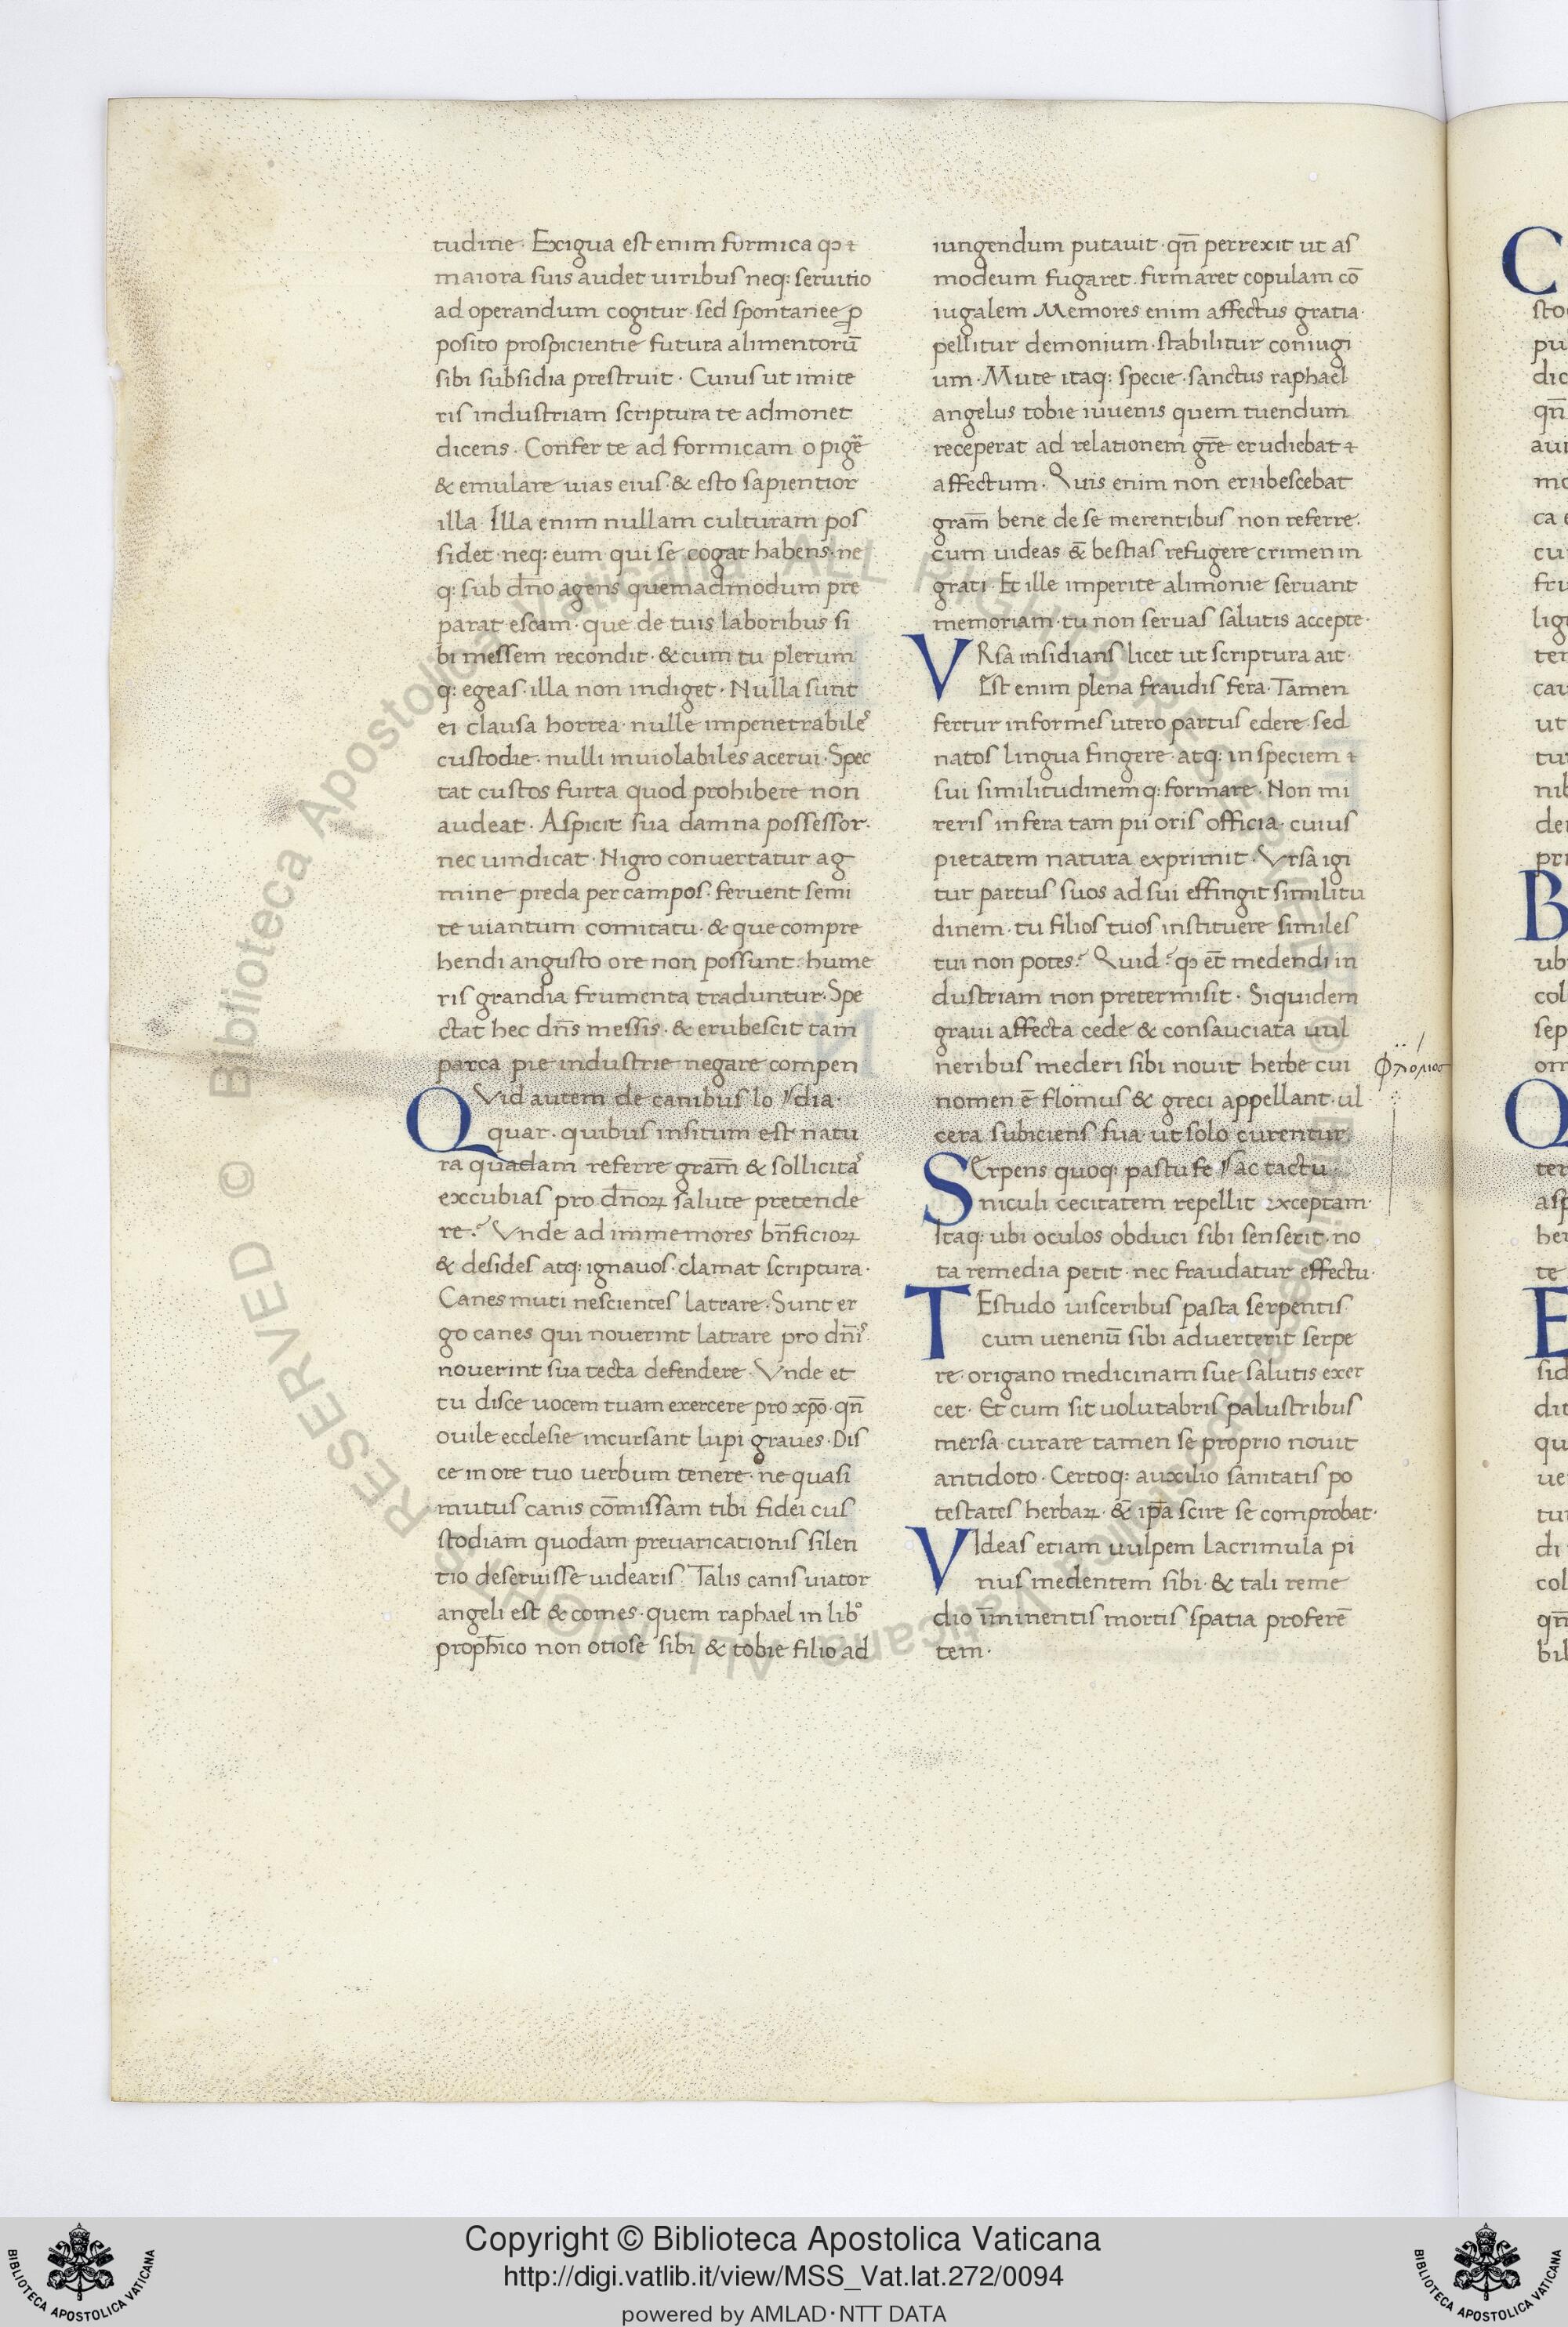 tudine. Exigua est enim formica qͻ ⁊
maiora suis audet uiribus neq: seruitio
ad operandum cogitur. sed spontanee ꝓ
posito prospicientie futura alimentorū
sibi subsidia prestruit. Cuius ut imite
ris industriam scriptura te admonet
dicens. Confer te ad formicam o piger
& emulare uias eius. & esto sapientior
illa. Illa enim nullam culturam pos
sidet. neq: eum qui se cogat habens. ne
q: sub dn̄o agens quemadmodum pre
parat escam. que de tuis laboribus si
bi messem recondit. & cum tu plerum
q: egeas. illa non indiget. Nulla sunt
ei clausa horrea. nulle impenetrabiles
custodie. nulli inuiolabiles acerui. Spec
tat custos furta quod prohibere non
audeat. Aspicit sua damna possessor.
nec uindicat. Nigro conuertatur ag
mine preda per campos. feruent semi
te uiantum comitatu. & que compre
hendi angusto ore non possunt. hume
ris grandia frumenta traduntur. Spe
ctat hec dn̄s messis. & erubescit tam
parca pie industrie negare compen
QVid autem de canibus lo dia.
quar. quibus insitum est natu
ra quadam referre gram̄ & sollicitas
excubias pro dn̄oꝝ salute pretende
re? Vnde ad immemores bn̄ficioꝝ
& desides atq: ignauos. clamat scriptura.
Canes muti nescientes latrare. Sunt er
go canes qui nouerint latrare pro dn̄is
nouerint sua tecta defendere. Vnde et
tu disce uocem tuam exercere pro xp̄o. qn̄
ouile ecclesie incursant lupi graues. Dis
ce in ore tuo uerbum tenere. ne quasi
mutus canis cōmissam tibi fidei cus
stodiam quodam preuaricationis silen
tio deseruisse uidearis. Talis canis uiator
angeli est & comes. quem raphael in libº
proph̄ico non otiose sibi & tobie filio ad
iungendum putauit. qn̄ perrexit ut as
modeum fugaret. firmaret copulam cō
iugalem. Memores enim affectus gratia.
pellitur demonium. stabilitur coniugi
um. Mute itaq: specie. sanctus raphael
angelus tobie iuuenis quem tuendum
receperat ad relationem gr̄e erudiebat ⁊
affectum. Quis enim non erubescebat
gram̄ bene de se merentibus non referre.
cum uideas & bestias refugere crimen in
grati. Et ille imperite alimonie seruant
memoriam. tu non seruas salutis accepte.
VRsa insidians licet ut scriptura ait.
Est enim plena fraudis fera. Tamen
fertur informes utero partus edere. sed
natos lingua fingere. atq: in speciem ⁊
sui similitudinemq: formare. Non mi
reris in fera tam pii oris officia. cuius
pietatem natura exprimit. Vrsa igi
tur partus suos ad sui effingit similitu
dinem. tu filios tuos instituere similes
tui non potes? Quid? qͻ et̄ medendi in
dustriam non pretermisit. Siquidem
graui affecta cede & consauciata uul
neribus mederi sibi nouit herbe cui
nomen ē flomus & greci appellant. ul
cera subiciens sua. ut solo curentur
φλομος
SErpens quoq: pastu fe ac tactu.
niculi cecitatem repellit exceptam.
Itaq: ubi oculos obduci sibi senserit. no
ta remedia petit. nec fraudatur effectu.
TEstudo uisceribus pasta serpentis
cum uenenū sibi aduerterit serpe
re. origano medicinam sue salutis exer
cet. Et cum sit uolutabris palustribus
mersa. curare tamen se proprio nouit
antidoto. Certoq: auxilio sanitatis po
testates herbaꝝ. & ip̄a scire se comprobat.
VIdeas etiam uulpem lacrimula pi
nus medentem sibi. & tali reme
dio īminentis mortis spatia proferē
tem.
Copyright © Biblioteca Apostolica Vaticana
http://digi.vatlib.it/view/MSS_Vat.lat.272/0094
powered by AMLAD·NTT DATA